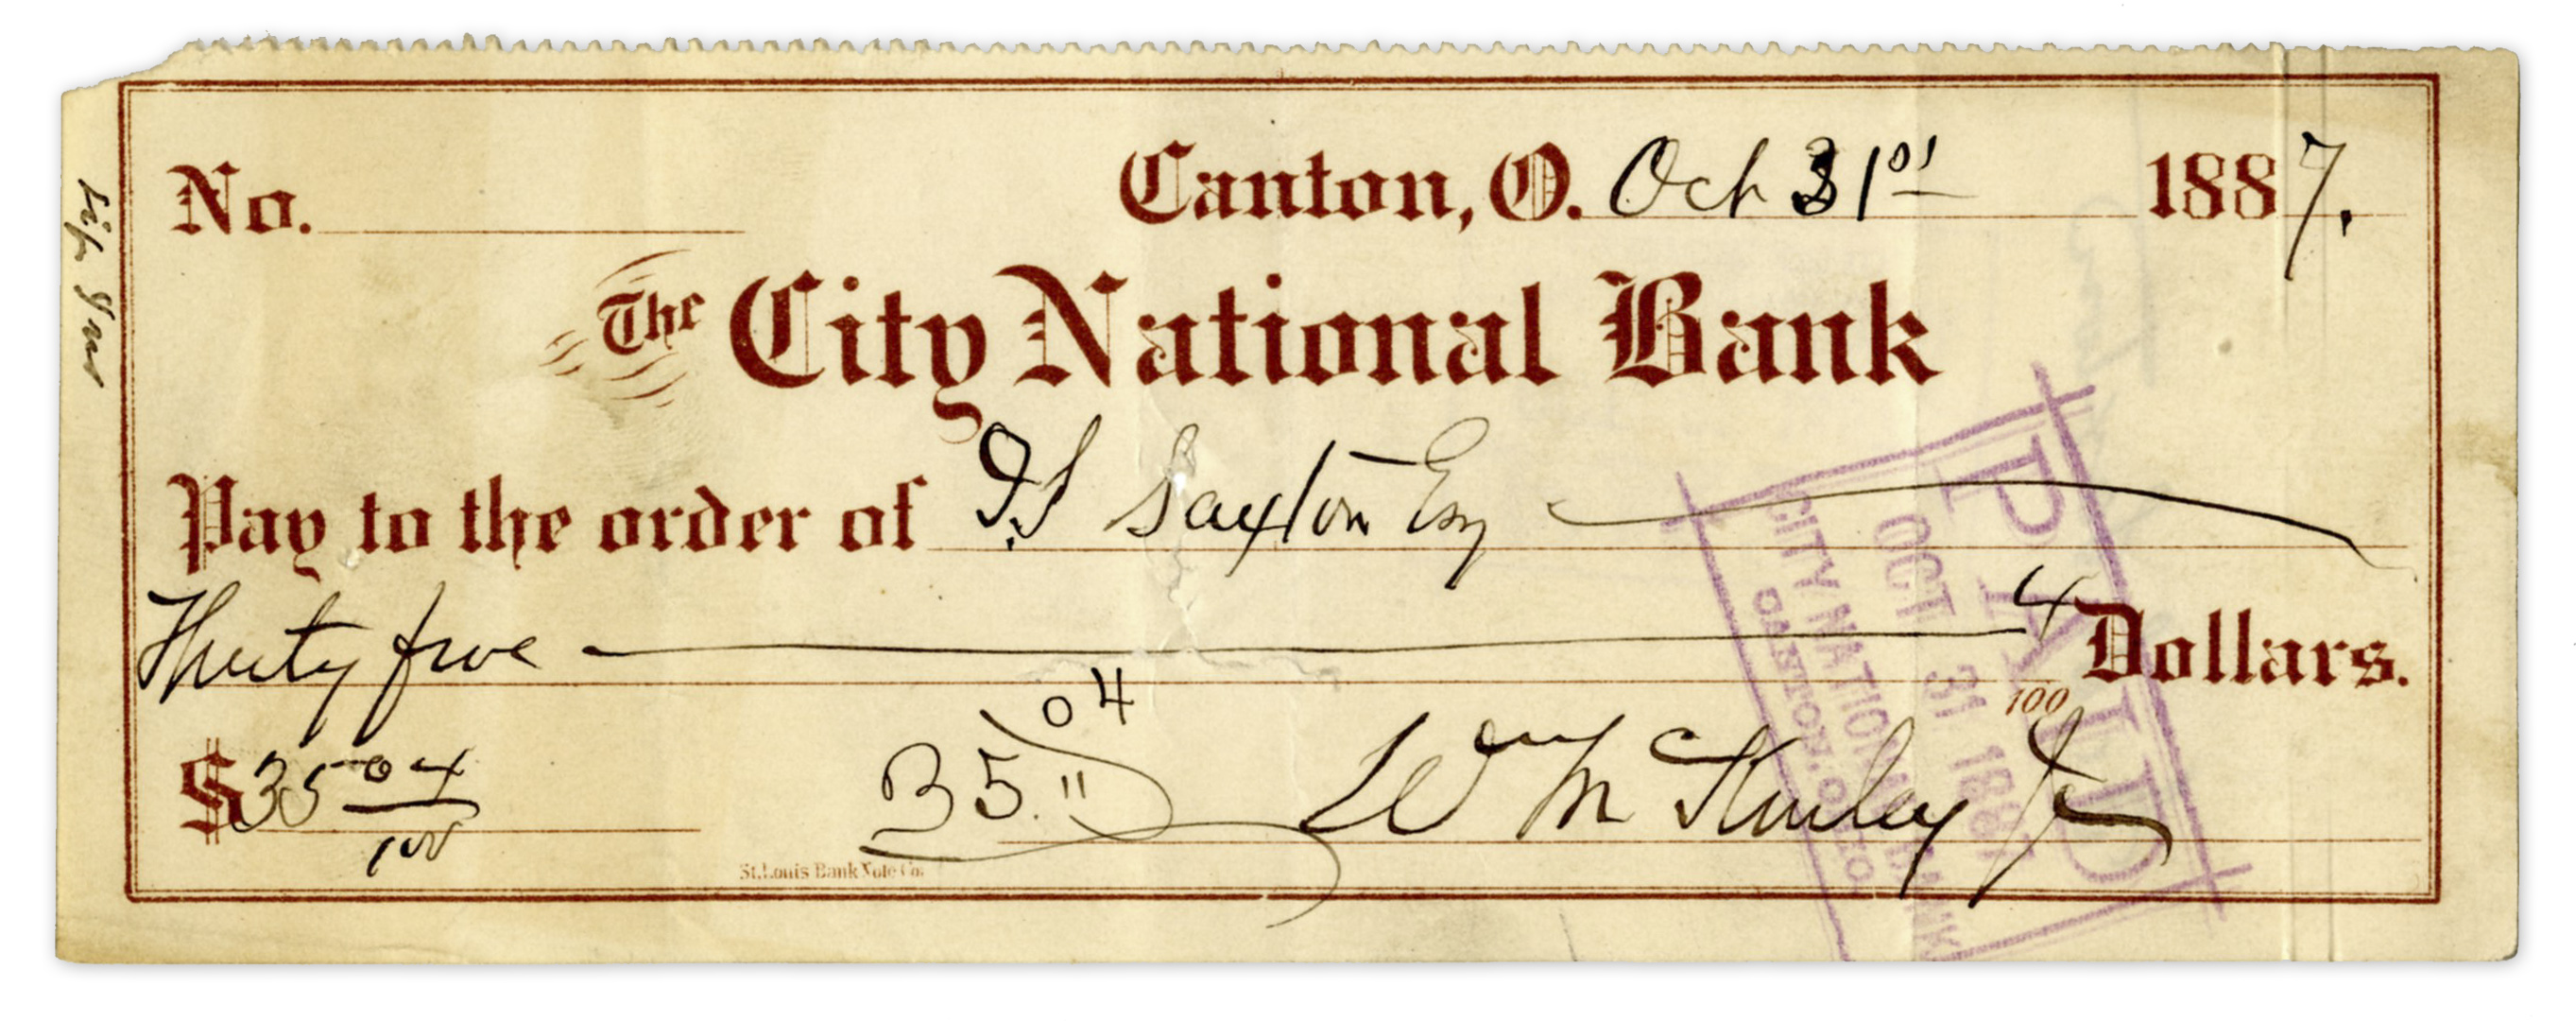 No. Canton, O. Oct 31st 1887.
The City National Bank
Pay to the order of T.S Saxton Esq
Thirty five 4/100 Dollars.
35.04
$35 04/100 Wm McKinley Jr
St. Louis Bank Note Co.
PAID
OCT 31 1887
CITY NATIONAL BANK
CANTON, OHIO.